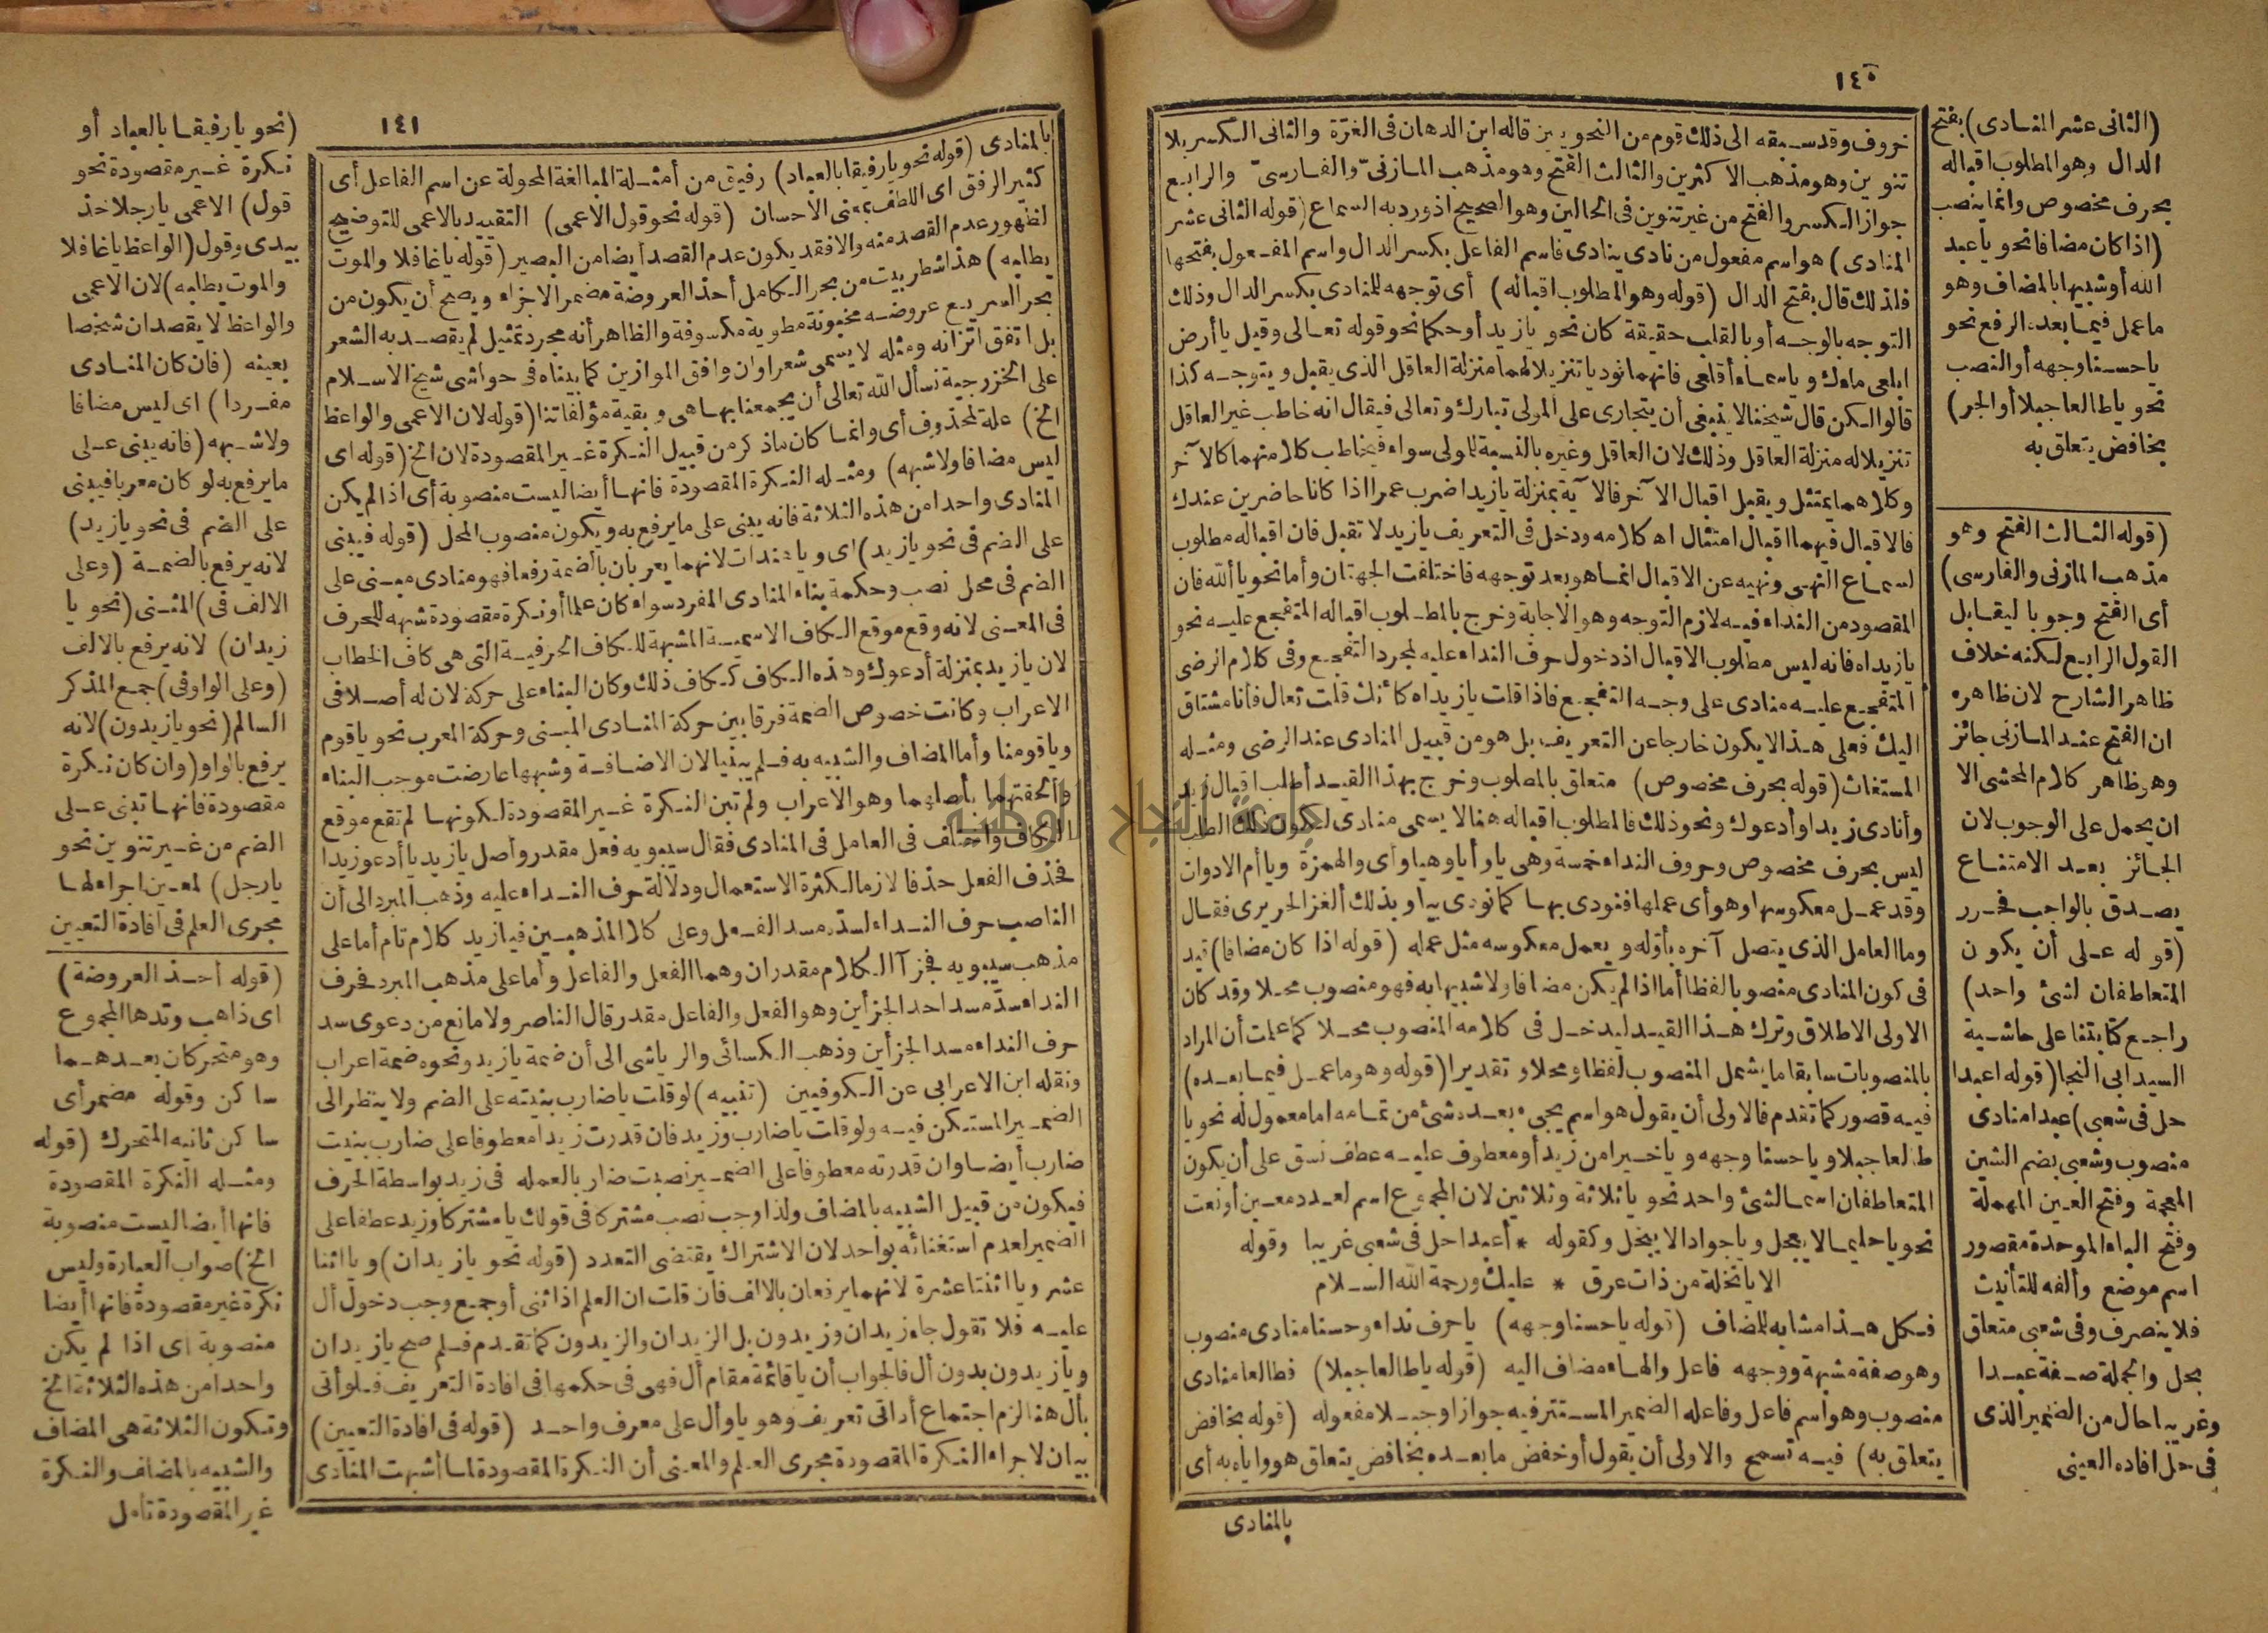 ١٤٠
(الثانى عشر المنادى) بفتح
الدال وهو المطلوب اقباله
بحرف مخصوص وانما ينصب
(اذا كان مضافا نحو يا عبد
الله أو شبيها بالمضاف وهو
ما عمل فيما بعده الرفع نحو
يا حسنا وجهه أو النصب
نحو يا طالعا جبلا أو الجر)
بخافض يتعلق به
(قوله الثالث الفتح وهو
مذهب المازنى والفارسى)
أى الفتح وجوبا ليقابل
القول الرابع لكنه خلاف
ظاهر الشارح لان ظاهره
ان الفتح عند المازنى جائز
وهو ظاهر كلام المحشى الا
ان يحمل على الوجوب لان
الجائز بعد الامتناع
يصدق بالواجب فحرر
(قوله على أن يكون
المتعاطفان لشئ واحد)
راجع كتابتنا على حاشية
السيد ابى النجا (قوله اعبدا
حل فى شعبى) عبدا منادى
منصوب وشعبى بضم الشين
المعجمة وفتح العين المهملة
وفتح الباء الموحدة مقصور
اسم موضع وألفه للتأنيث
فلا ينصرف وفى شعبى متعلق
بحل والجملة صفة عبدا
وغريبا حال من الضمير الذى
فى حل افاده العينى
خروف وقد سبقه الى ذلك قوم من النحويين قاله ابن الدهان فى الغرة والثانى الكسر بلا
تنوين وهو مذهب الاكثرين والثالث الفتح وهو مذهب المازنىّ والفارسىّ والرابع
جواز الكسر والفتح من غير تنوين فى الحالين وهو الصحيح اذ ورد به السماع (قوله الثانى عشر
المنادى) هو اسم مفعول من نادى ينادى فاسم الفاعل بكسر الدال واسم المفعول بفتحها
فلذلك قال بفتح الدال (قوله وهو المطلوب اقباله) أى توجهه للمنادى بكسر الدال وذلك
التوجه بالوجه أو بالقلب حقيقة كان نحو يا زيد أو حكما نحو قوله تعالى وقيل يا أرض
ابلعى ماءك ويا سماء أقلعى فانهما نوديا تنزيلا لهما منزلة العاقل الذى يقبل ويتوجه كذا
قالوا لكن قال شيخنا لا ينبغى أن يتجارى على المولى تبارك وتعالى فيقال انه خاطب غير العاقل
تنزيلا له منزلة العاقل وذلك لان العاقل وغيره بالنسبة للمولى سواء فيخاطب كلا منهما كالآخر
وكلاهما يمتثل ويقبل اقبال الآخر فالآية بمنزلة يا زيد اضرب عمرا اذا كانا حاضرين عندك
فالاقبال فيهما اقبال امتثال اه كلامه ودخل فى التعريف يا زيد لا تقبل فان اقباله مطلوب
لسماع النهى ونهيه عن الاقبال انما هو بعد توجهه فاختلفت الجهتان وأما نحو يا ألله فان
المقصود من النداء فيه لازم التوجه وهو الاجابة وخرج بالمطلوب اقباله المتفجع عليه نحو
يا زيداه فانه ليس مطلوب الاقبال اذ دخول حرف النداء عليه لمجرد التفجع وفى كلام الرضى
المتفجع عليه منادى على وجه التفجع فاذا قلت يا زيداه كأنك قلت تعال فأنا مشتاق
اليك فعلى هذا لا يكون خارجا عن التعريف بل هو من قبيل المنادى عند الرضى ومثله
المستغاث (قوله بحرف مخصوص) متعلق بالمطلوب وخرج بهذا القيد أطلب اقبال زيد
وأنادى زيدا وأدعوك ونحو ذلك فالمطلوب اقباله هنا لا يسمى منادى لكون ذلك الطلب
ليس بحرف مخصوص وحروف النداء خمسة وهى يا وأيا وهيا وأى والهمزة ويا أم الادوات
وقد عمل معكوسها وهو أى عملها فنودى بها كما نودى بيا وبذلك ألغز الحريرى فقال
وما العامل الذى يتصل آخره بأوله ويعمل معكوسه مثل عمله (قوله اذا كان مضافا) قيد
فى كون المنادى منصوبا لفظا أما اذا لم يكن مضافا ولا شبيها به فهو منصوب محلا وقد كان
الاولى الاطلاق وترك هذا القيد ليدخل فى كلامه المنصوب محلا كما علمت أن المراد
بالمنصوبات سابقا ما يشمل المنصوب لفظا ومحلا وتقديرا (قوله وهو ما عمل فيما بعده)
فيه قصور كما تقدم فالاولى أن يقول هو اسم يجىء بعده شئ من تمامه اما معمول له نحو يا
طالعا جبلا ويا حسنا وجهه ويا خيرا من زيد أو معطوف عليه عطف نسق على أن يكون
المتعاطفان اسما لشئ واحد نحو يا ثلاثة وثلاثين لان المجموع اسم لعدد معين أو نعت
نحو يا حليما لا يعجل ويا جوادا لا يبخل وكقوله * أعبدا حل فى شعبى غريبا وقوله
الا يا نخلة من ذات عرق * عليك ورحمة الله السلام
فكل هذا مشابه للمضاف (قوله يا حسنا وجهه) يا حرف نداء وحسنا منادى منصوب
وهو صفة مشبهة ووجهه فاعل والهاء مضاف اليه (قوله يا طالعا جبلا) فطالعا منادى
منصوب وهو اسم فاعل وفاعله الضمير المستتر فيه جوازا وجبلا مفعوله (قوله بخافض
يتعلق به) فيه تسمح والاولى أن يقول أو خفض ما بعده بخافض يتعلق هو واياه به أى
بالمنادى
١٤١
بالمنادى (قوله نحو يا رفيقا بالعباد) رفيق من أمثلة المبالغة المحولة عن اسم الفاعل أى
كثير الرفق اى اللطف بمعنى الاحسان (قوله نحو قول الاعمى) التقييد بالاعمى للتوضيح
لظهور عدم القصد منه والا فقد يكون عدم القصد أيضا من البصير (قوله يا غافلا والموت
يطلبه) هذا شطر بيت من بحر الكامل أحذ العروضة مضمر الاجزاء ويصح أن يكون من
بحر السريع عروضه مخبونة مطوية مكسوفة والظاهر أنه مجرد تمثيل لم يقصد به الشعر
بل اتفق اتزانه ومثله لا يسمى شعرا وان وافق الموازين كما بيناه فى حواشى شيخ الاسلام
على الخزرجية نسأل الله تعالى أن يجمعنا بها هى وبقية مؤلفاتنا (قوله لان الاعمى والواعظ
الخ) علة لمحذوف أى وانما كان ماذكر من قبيل النكرة غير المقصودة لان الخ (قوله اى
ليس مضافا ولا شبهه) ومثله النكرة المقصودة فانها أيضا ليست منصوبة أى اذا لم يكن
المنادى واحدا من هذه الثلاثة فانه يبنى على ما يرفع به ويكون منصوب المحل (قوله فيبنى
على الضم فى نحو يا زيد) اى ويا هندات لانهما يعربان بالضمة رفعا فهو منادى مبنى على
الضم فى محل نصب وحكمة بناء المنادى المفرد سواء كان علما أو نكرة مقصودة شبهه للحرف
فى المعنى لانه وقع موقع الكاف الاسمية المشبهة للكاف الحرفية التى هى كاف الخطاب
لان يا زيد بمنزلة أدعوك وهذه الكاف ككاف ذلك وكان البناء على حركة لان له أصلا فى
الاعراب وكانت خصوص الضمة فرقا بين حركة المنادى المبنى وحركة المعرب نحو يا قوم
ويا قومنا وأما المضاف والشبيه به فلم يبنيا لان الاضافة وشبهها عارضت موجب البناء
وألحقتهما بأصلهما وهو الاعراب ولم تبن النكرة غير المقصودة لكونها لم تقع موقع
الكاف واختلف فى العامل فى المنادى فقال سيبويه فعل مقدر وأصل يا زيد يا أدعو زيدا
فحذف الفعل حذفا لازما لكثرة الاستعمال ودلالة حرف النداء عليه وذهب المبرد الى أن
الناصب حرف النداء لسدّه مسد الفعل وعلى كلا المذهبين فيا زيد كلام تام أما على
مذهب سيبويه فجزآ الكلام مقدران وهما الفعل والفاعل وأما على مذهب المبرد فحرف
النداء سدّ مسد احد الجزأين وهو الفعل والفاعل مقدر قال الناصر ولا مانع من دعوى سد
حرف النداء مسد الجزأين وذهب الكسائى والرياشى الى أن ضمة يا زيد ونحوه ضمة اعراب
ونقله ابن الاعرابى عن الكوفيين (تنبيه) لو قلت يا ضارب بنيته على الضم ولا ينظر الى
الضمير المستكن فيه ولو قلت يا ضارب وزيد فان قدرت زيدا معطوفا على ضارب بنيت
ضارب أيضا وان قدرته معطوفا على الضمير نصبت ضاربا لعمله فى زيد بواسطة الحرف
فيكون من قبيل الشبيه بالمضاف ولذا وجب نصب مشتركا فى قولك يا مشتركا وزيد عطفا على
الضمير لعدم استغنائه بواحد لان الاشتراك يقتضى التعدد (قوله نحو يا زيدان) ويا اثنا
عشر ويا اثنتا عشرة لانهما يرفعان بالالف فان قلت ان العلم اذا ثنى أو جمع وجب دخول أل
عليه فلا تقول جاء زيدان وزيدون بل الزيدان والزيدون كما تقدم فلم صح يا زيدان
ويا زيدون بدون أل فالجواب أن يا قائمة مقام أل فهى فى حكمها فى افادة التعريف فلو أتى
بأل هنا لزم اجتماع أداتى تعريف وهو يا وأل على معرف واحد (قوله فى افادة التعيين)
بيان لاجراء النكرة المقصودة مجرى العلم والمعنى أن النكرة المقصودة لما أشبهت المنادى
(نحو يا رفيقا بالعباد أو
نكرة غير مقصودة نحو
قول) الاعمى يا رجلا خذ
بيدى وقول (الواعظ يا غافلا
والموت يطلبه) لان الاعمى
والواعظ لا يقصدان شخصا
بعينه (فان كان المنادى
مفردا) اى ليس مضافا
ولا شبهه (فانه يبنى على
ما يرفع به لو كان معربا فيبنى
على الضم فى نحو يا زيد)
لانه يرفع بالضمة (وعلى
الالف فى) المثنى (نحو يا
زيدان) لانه يرفع بالالف
(وعلى الواو فى) جمع المذكر
السالم (نحو يا زيدون) لانه
يرفع بالواو (وان كان نكرة
مقصودة فانها تبنى على
الضم من غير تنوين نحو
يا رجل) لمعين اجراء لها
مجرى العلم فى افادة التعيين
(قوله أحذ العروضة)
اى ذاهب وتدها المجموع
وهو متحركان بعدهما
ساكن وقوله مضمر أى
ساكن ثانيه المتحرك (قوله
ومثله النكرة المقصودة
فانها أيضا ليست منصوبة
الخ) صواب العبارة وليس
نكرة غير مقصودة فانها أيضا
منصوبة اى اذا لم يكن
واحدا من هذه الثلاثة الخ
وتكون الثلاثة هى المضاف
والشبيه بالمضاف والنكرة
غير المقصودة تأمل